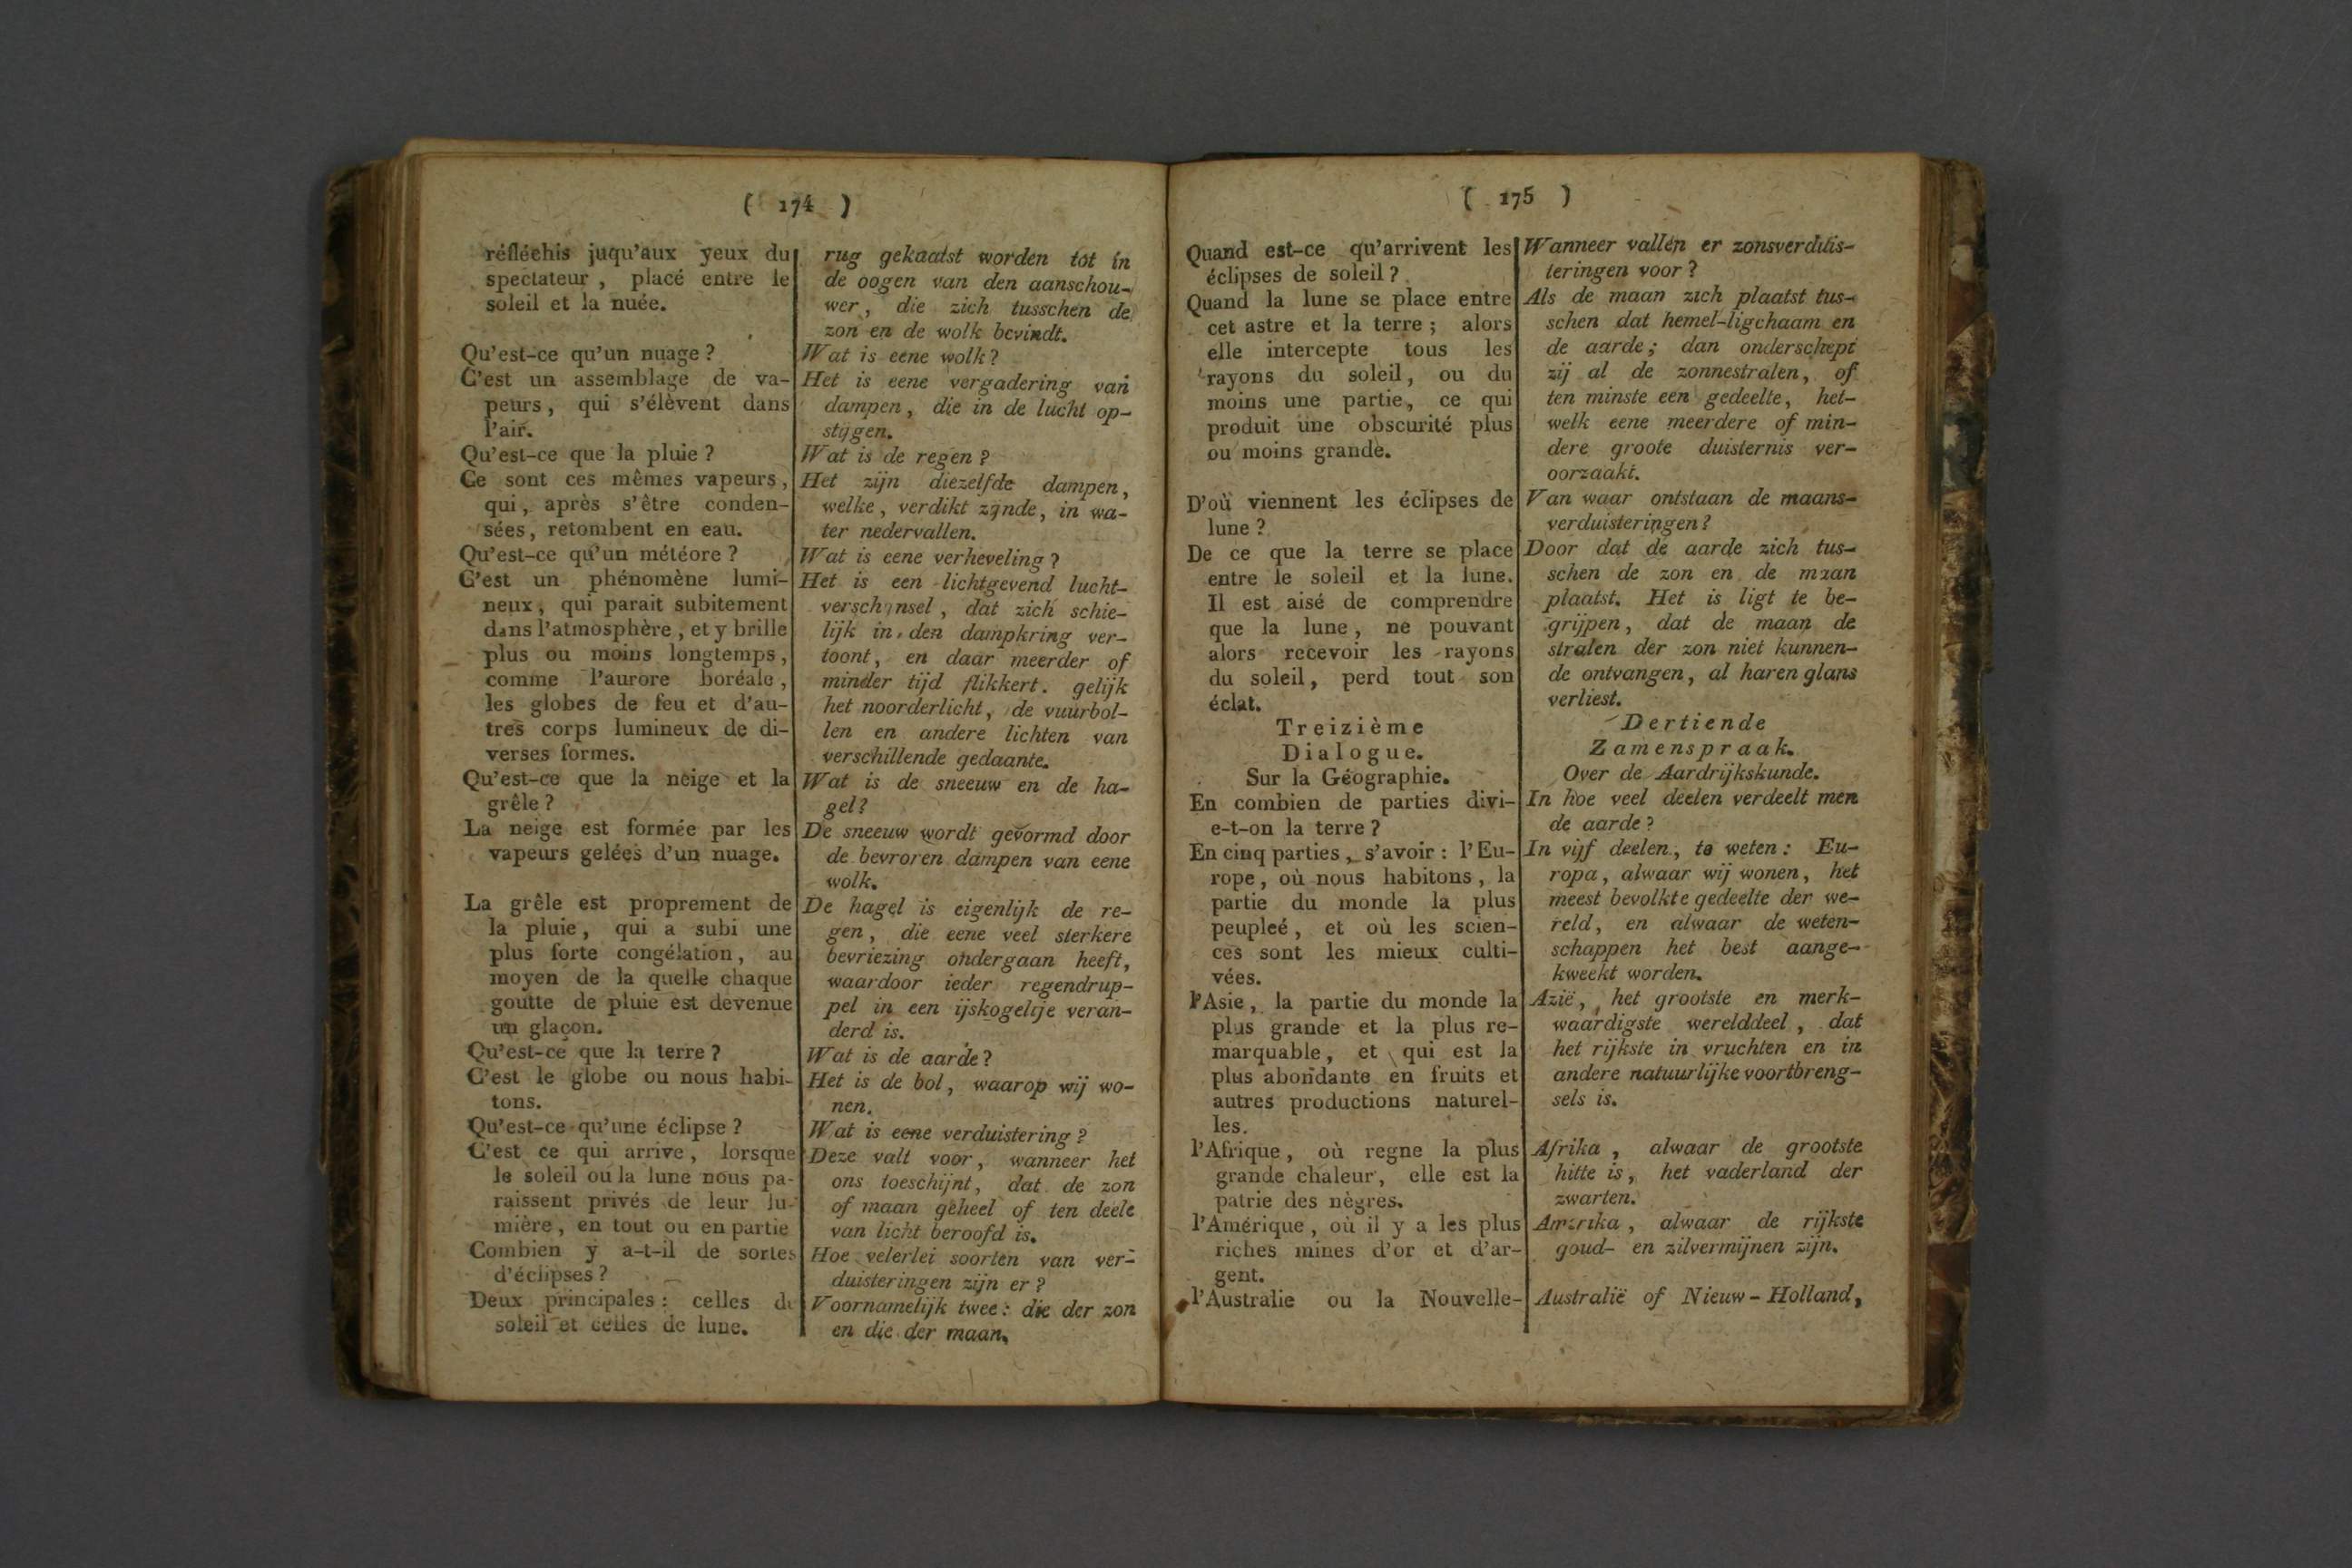 ( 174 )
réfléchis juqu'aux yeux du
spectateur, placé entre le
soleil et la nuée.
Qu'est-ce qu'un nuage?
C'est un assemblage de va-
peurs, qui s'élèvent dans
l'air.
Qu'est-ce que la pluie?
Ce sont ces mêmes vapeurs,
qui, après s'être conden-
sées, retombent en eau.
Qu'est-ce qu'un météore?
C'est un phénomène lumi-
neux, qui parait subitement
dans l'atmosphère, et y brille
plus ou moins longtemps,
comme l'aurore boréale,
les globes de feu et d'au-
tres corps lumineux de di-
verses formes.
Qu'est-ce que la neige et la
grêle?
La neige est formée par les
vapeurs gelées d'un nuage.
La grêle est proprement de
la pluie, qui a subi une
plus forte congélation, au
moyen de la quelle chaque
goutte de pluie est devenue
un glaçon.
Qu'est-ce que la terre?
C'est le globe ou nous habi-
tons.
Qu'est-ce qu'une éclipse?
C'est ce qui arrive, lorsque
le soleil ou la lune nous pa-
raissent privés de leur lu-
mière, en tout ou en partie
Combien y a-t-il de sortes
d'éclipses?
Deux principales: celles du
soleil et celles de lune.
rug gekaatst worden tot in
de oogen van den aanschou-
wer, die zich tusschen de
zon en de wolk bevindt.
Wat is eene wolk?
Het is eene vergadering van
dampen, die in de lucht op-
stijgen.
Wat is de regen?
Het zijn diezelfde dampen,
welke, verdikt zijnde, in wa-
ter nedervallen.
Wat is eene verheveling?
Het is een lichtgevend lucht-
verschijnsel, dat zich schie-
lijk in den dampkring ver-
toont, en daar meerder of
minder tijd flikkert. gelijk
het noorderlicht, de vuurbol-
len en andere lichten van
verschillende gedaante.
Wat is de sneeuw en de ha-
gel?
De sneeuw wordt gevormd door
de bevroren dampen van eene
wolk.
De hagel is eigenlijk de re-
gen, die eene veel sterkere
bevriezing ondergaan heeft,
waardoor ieder regendrup-
pel in een ijskogeltje veran-
derd is.
Wat is de aarde?
Het is de bol, waarop wij wo-
nen.
Wat is eene verduistering?
Deze valt voor, wanneer het
ons toeschijnt, dat de zon
of maan geheel of ten deele
van licht beroofd is.
Hoe velerlei soorten van ver-
duisteringen zijn er?
Voornamelijk twee: die der zon
en die der maan.
( 175 )
Quand est-ce qu'arrivent les
éclipses de soleil?
Quand la lune se place entre
cet astre et la terre; alors
elle intercepte tous les
rayons du soleil, ou du
moins une partie, ce qui
produit une obscurité plus
ou moins grande.
D'où viennent les éclipses de
lune?
De ce que la terre se place
entre le soleil et la lune.
Il est aisé de comprendre
que la lune, ne pouvant
alors recevoir les rayons
du soleil, perd tout son
éclat.
Treizième
Dialogue.
Sur la Géographie.
En combien de parties divi-
e-t-on la terre?
En cinq parties, s'avoir: l'Eu-
rope, où nous habitons, la
partie du monde la plus
peupleé, et où les scien-
ces sont les mieux culti-
vées.
l'Asie, la partie du monde la
plus grande et la plus re-
marquable, et qui est la
plus abondante en fruits et
autres productions naturel-
les.
l'Afrique, où regne la plus
grande chaleur, elle est la
patrie des nègres.
l'Amérique, où il y a les plus
riches mines d'or et d'ar-
gent.
l'Australie ou la Nouvelle-
Wanneer vallen er zonsverduis-
teringen voor?
Als de maan zich plaatst tus-
schen dat hemel-ligchaam en
de aarde; dan onderschept
zij al de zonnestralen, of
ten minste een gedeelte, het-
welk eene meerdere of min-
dere groote duisternis ver-
oorzaakt.
Van waar ontstaan de maans-
verduisteringen?
Door dat de aarde zich tus-
schen de zon en de maan
plaatst. Het is ligt te be-
grijpen, dat de maan de
stralen der zon niet kunnen-
de ontvangen, al haren glans
verliest.
Dertiende
Zamenspraak.
Over de Aardrijkskunde.
In hoe veel deelen verdeelt men
de aarde?
In vijf deelen, te weten: Eu-
ropa, alwaar wij wonen, het
meest bevolkte gedeelte der we-
reld, en alwaar de weten-
schappen het best aange-
kweekt worden.
Azië, het grootste en merk-
waardigste werelddeel, dat
het rijkste in vruchten en in
andere natuurlijke voortbreng-
sels is.
Afrika, alwaar de grootste
hitte is, het vaderland der
zwarten.
Amerika, alwaar de rijkste
goud- en zilvermijnen zijn.
Australië of Nieuw-Holland,